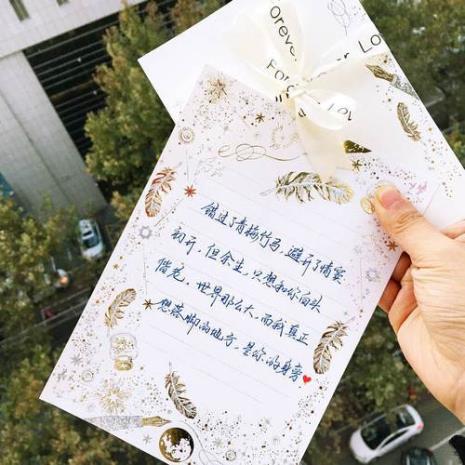 Forever Love
错过了青梅竹马，避开了情窦
初开，但余生，只想和你白头
偕老，世界那么大，而我真正
想落脚的地方，是你的身旁